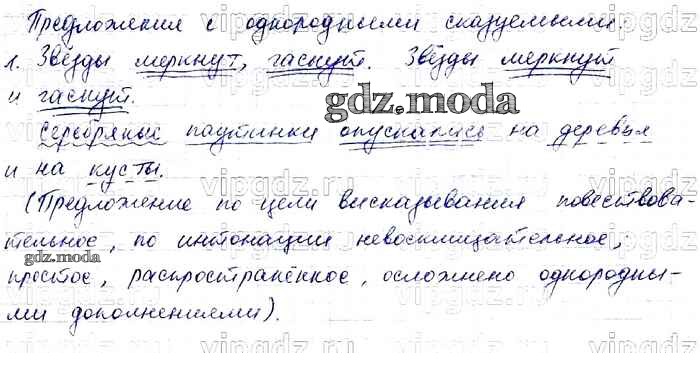 Предложения с однородными сказуемыми.
1. Звёзды меркнут, гаснут. Звёзды меркнут
и гаснут.
gdz.moda
Серебряные паутинки опускались на деревья
и на кусты.
(Предложение по цели высказывания повествова-
тельное, по интонации невосклицательное,
gdz.moda
простое, распространённое, осложнено однородны-
ми дополнениями).